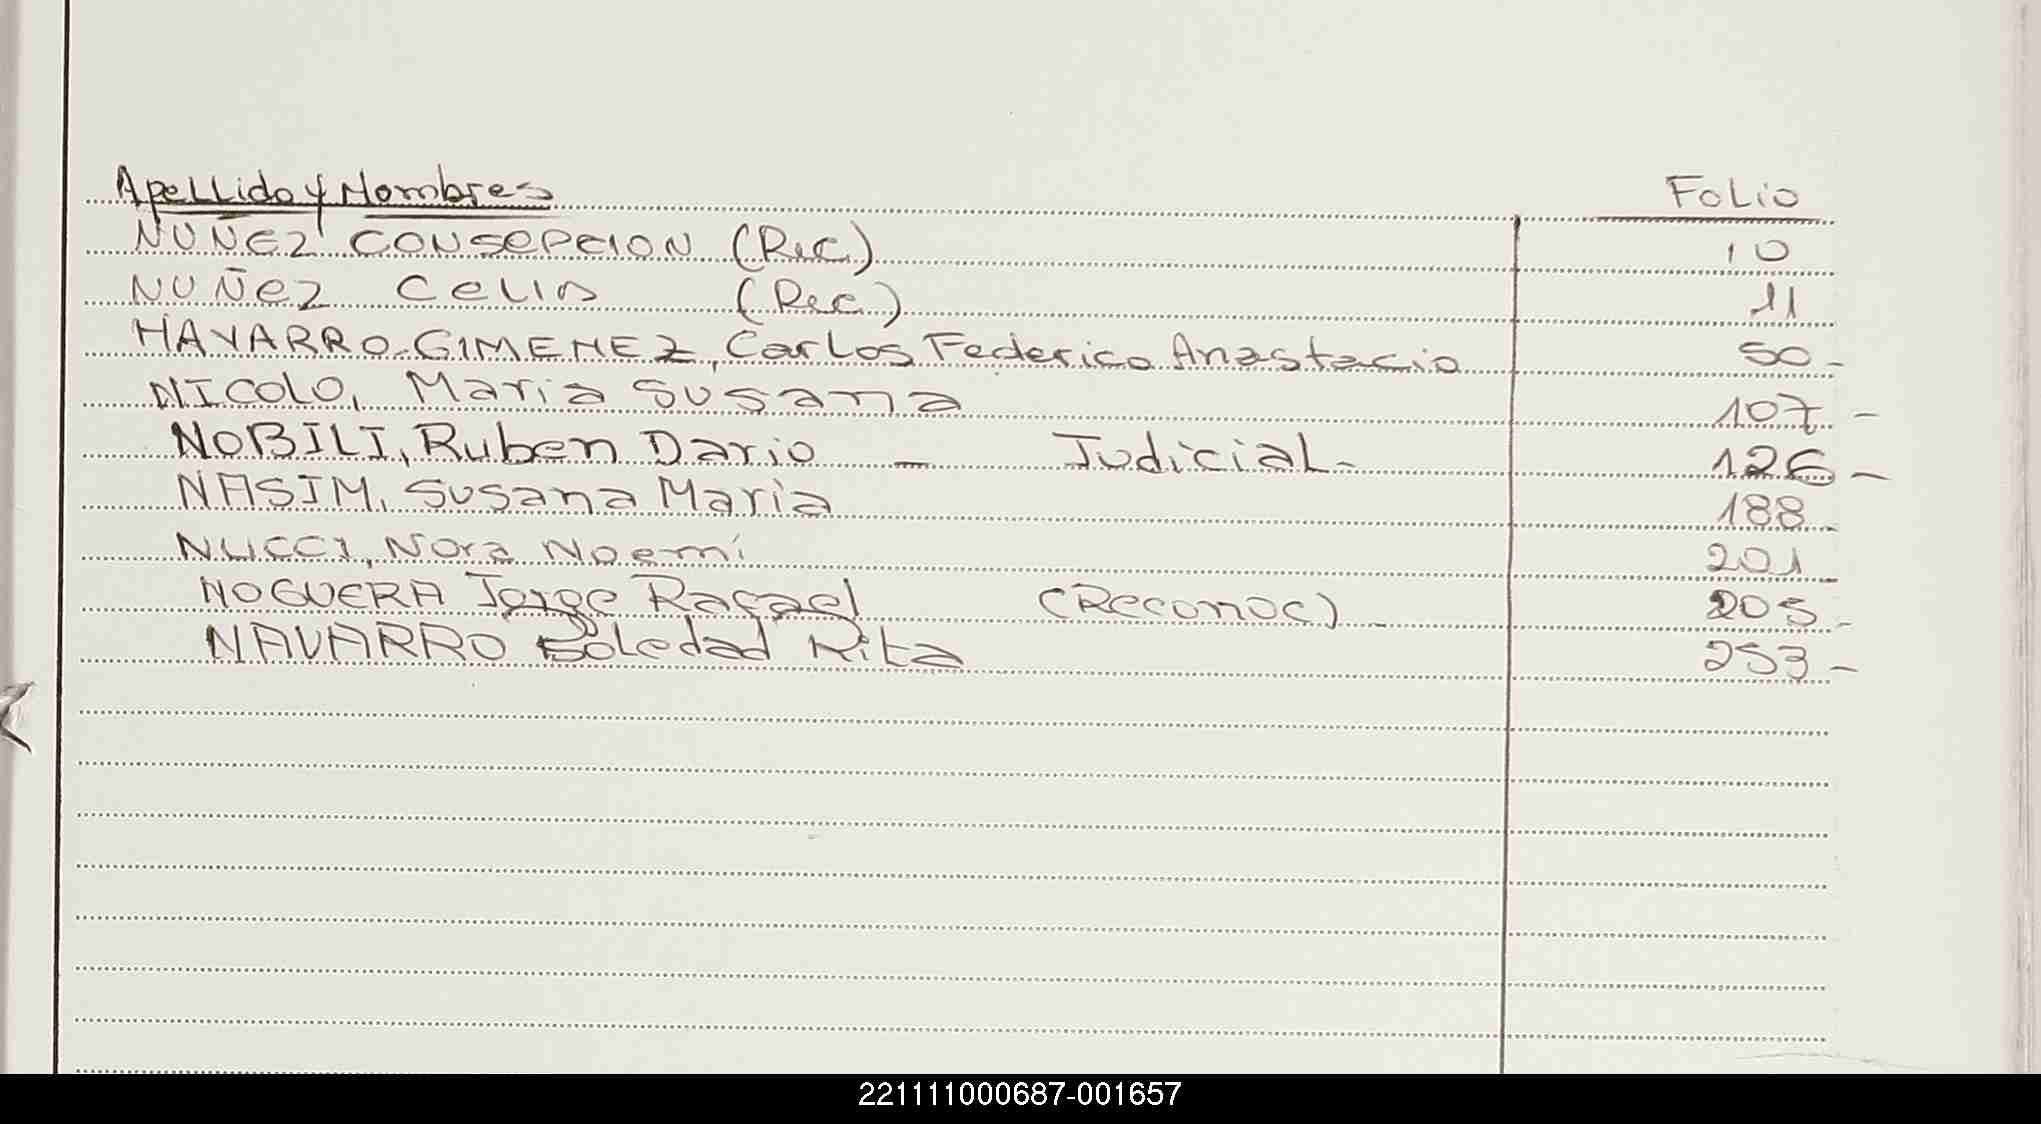 Apellido y Nombres Folio
NUÑEZ CONSEPCION (Rec.) 10
NUÑEZ CELIA (Rec.) 11
NAVARRO GIMENEZ, Carlos Federico Anastacio 50-
NICOLO, Maria Susana 107-
NOBILI, Ruben Dario - Judicial- 126-
NASIM, Susana Maria 188-
NUCCI, Nora Noemí 201-
NOGUERA Jorge Rafael (Reconoc)- 205-
NAVARRO Soledad Rita 253-
221111000687-001657